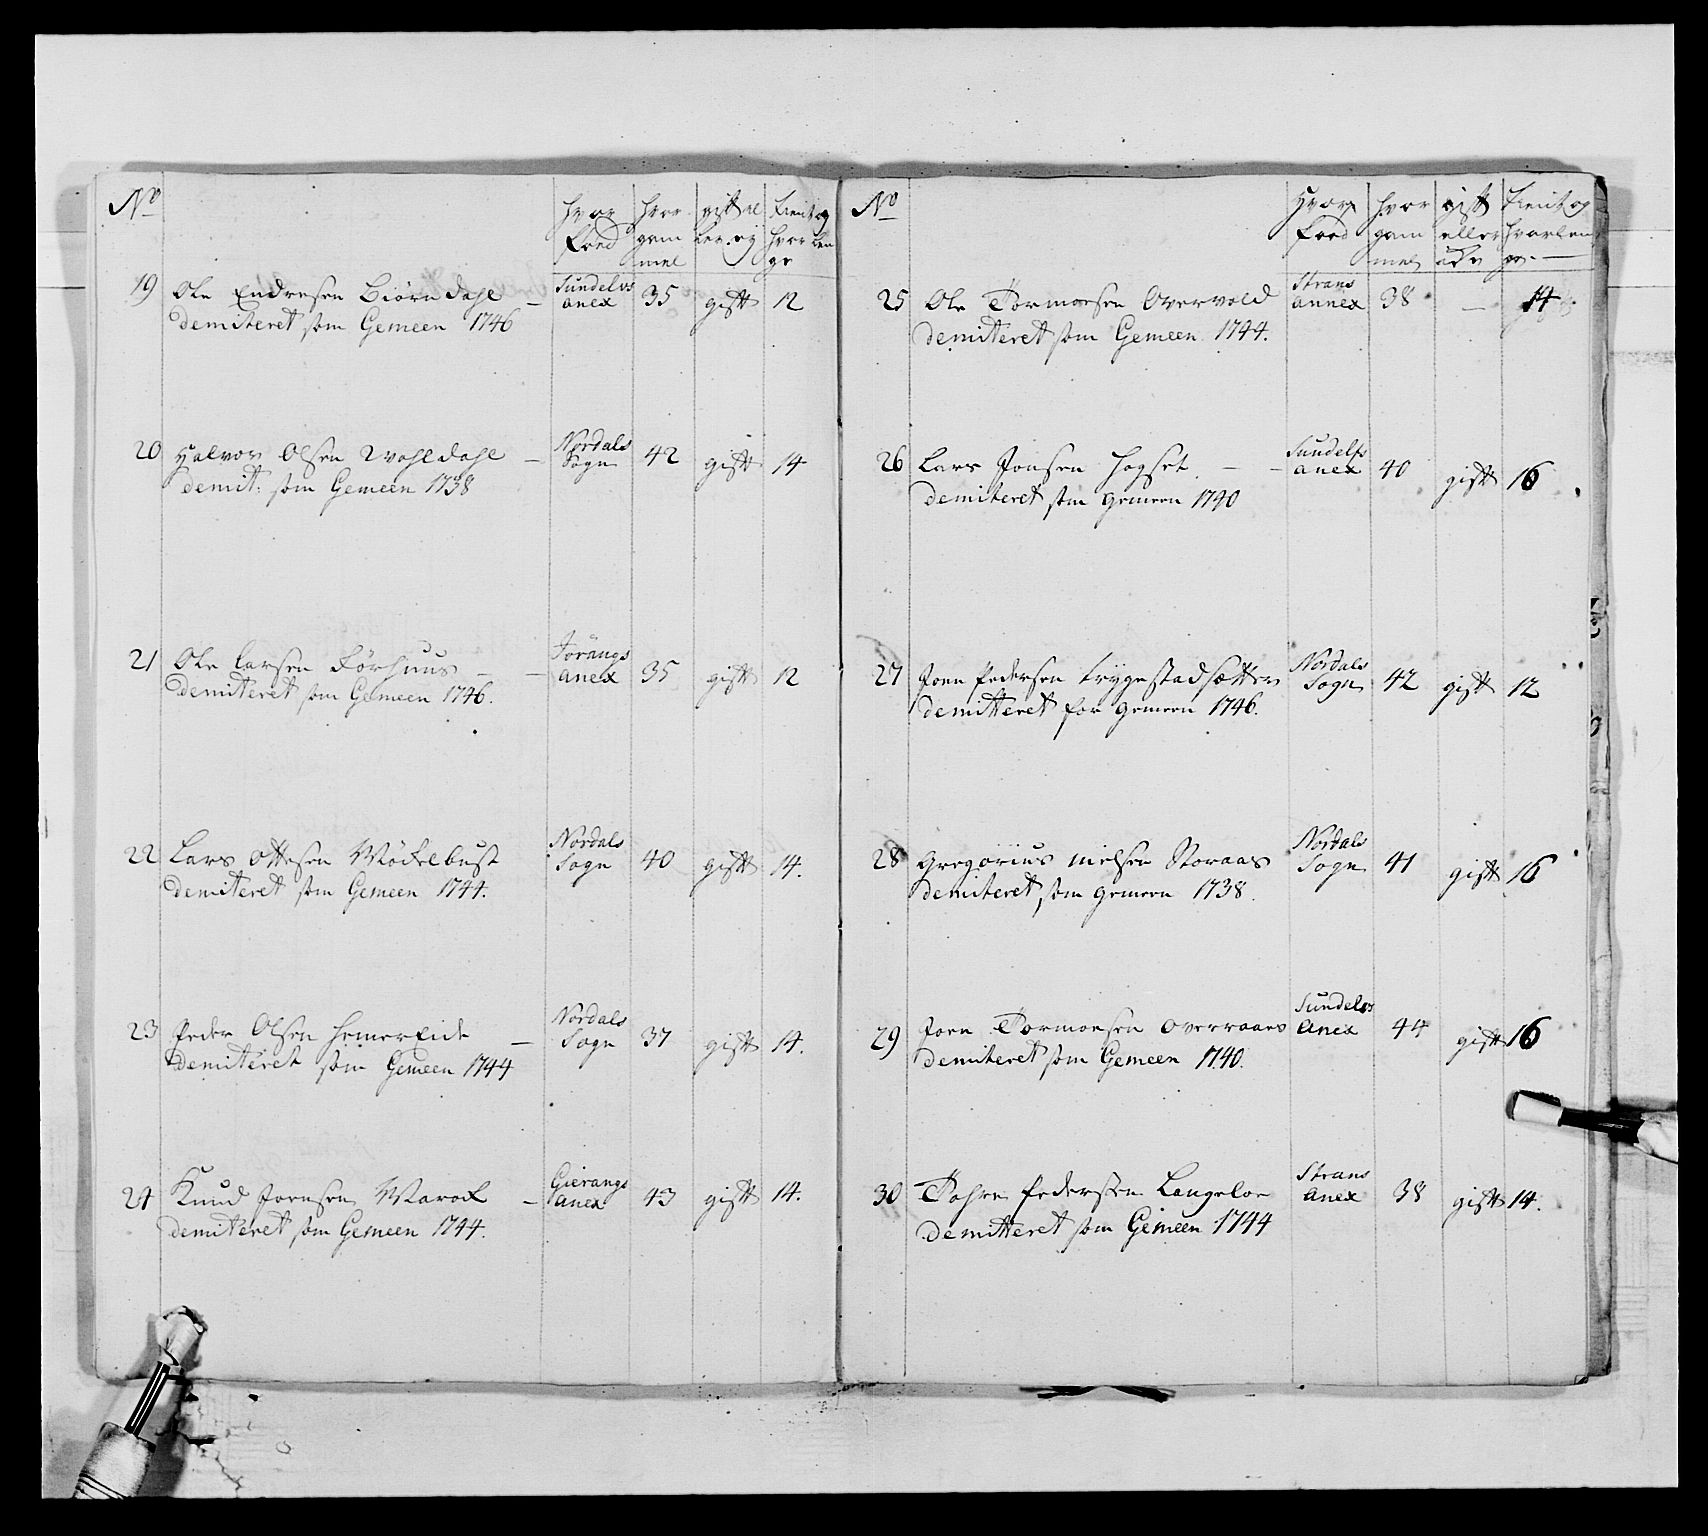 No
hvor
foed
hvor
gam
mel
gift el
ler ey
tient og
hvor len
ge
19 Ole Endresen Biørndahl — Sundelvs
Anex 35 gift 12
demiteret som Gemeen 1746
20 Halvor Olsen Wahldahl — Nordals
Sogn 42 gift 14
demit: som Gemeen 1738
21 Ole Larsen Førhuus — Anex 35 gift 12
demiteret som Gemeen 1746.
22 Lars Ottesen Møckelbust Nordals
Sogn 40 gift 14.
demiteret som Gemeen 1744.
23 Peder Olsen — Nordals
Sogn 37 gift 14.
demiteret som Gemeen 1744
24 Knud Joensen Marock — Gierangs
Anex 43 gift 14.
demiteret som Gemeen 1744.
No
Hvor
foed
hvor
gam
mel
gift
eller
tient og
hvor len
ge. —
25 Ole Tormoesen Overvold Strans
annex 38 — 14
demiteret som Gemeen 1744.
26 Lars Jonsen Hogset — Sundelfs
anex 40 gift 16
demiteret som gemeen 1740
27 Joen Pedersen Trygestadsætter Nordals
Sogn 42 gift 12
demitteret for gemeen 1746.
28 Gregorius Nielsen Storaas Nordals
Sogn 41 gift 16
demiteret som gemeen 1738.
29 Joen Tormoesen Overraaes Sundelvs
Anex 44 gift 16
demiteret som Gemeen 1740.
30 Pedersen Langeloe Strans
Anex 38 gift 14.
demitteret som Gemeen 1744